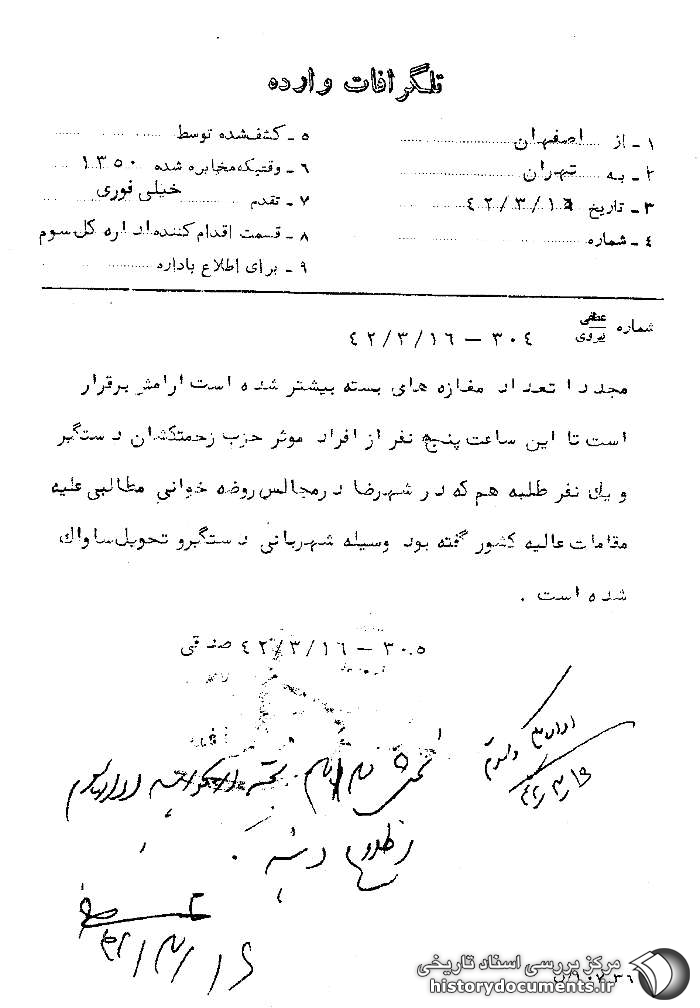 تلگرافات وارده
۱ ـ از اصفهان
۲ ـ به تهران
۳ ـ تاریخ ۴۲/۳/۱۶
۴ ـ شماره
۵ ـ کشف شده توسط
۶ ـ وقتیکه مخابره شده ۱۳۵۰
۷ ـ تقدم خیلی فوری
۸ ـ قسمت اقدام کننده اداره کل سوم
۹ ـ برای اطلاع باداره
شماره ۳۰۴ – ۴۲/۳/۱۶
مجددا تعداد مغازه های بسته بیشتر شده است ارامش برقرار
است تا این ساعت پنج نفر از افراد موثر حزب زحمتکشان دستگیر
و یك نفر طلبه هم که در شهرضا در مجالس روضه خوانی مطالبی علیه
مقامات عالیه کشور گفته بود وسیله شهربانی دستگیرو تحویل ساواك
شده است .
۳۰۵ – ۴۲/۳/۱۶ صدقی
۴۲/۳/۱۶
۴۲/۳/۱۶
مرکز بررسی اسناد تاریخی
historydocuments.ir